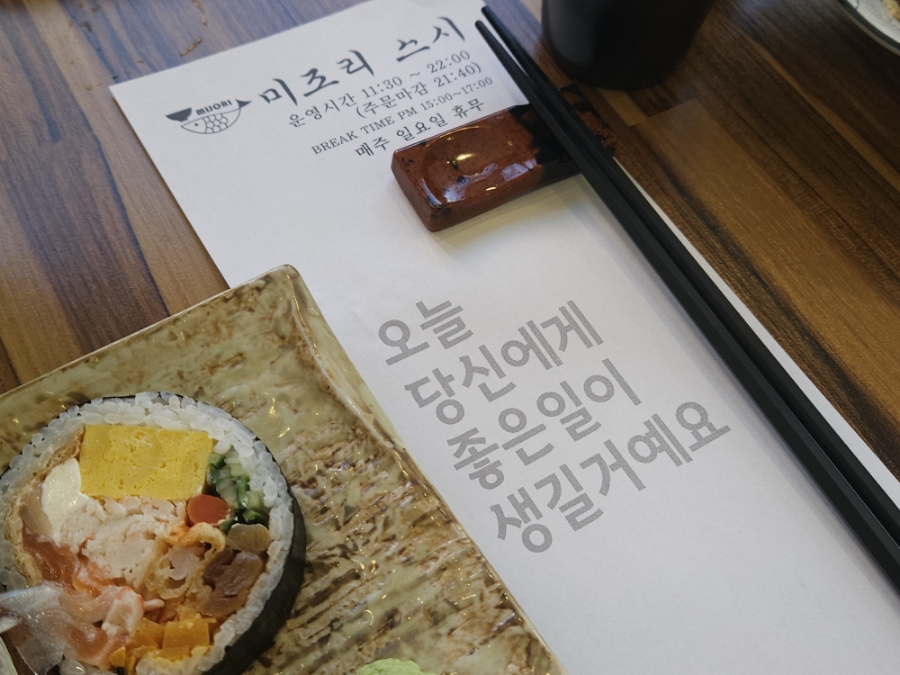 MIJORI
미조리 스시
운영시간 11:30 ~ 22:00
(주문마감 21:40)
BREAK TIME PM 15:00~17:00
매주 일요일 휴무
오늘
당신에게
좋은일이
생길거예요